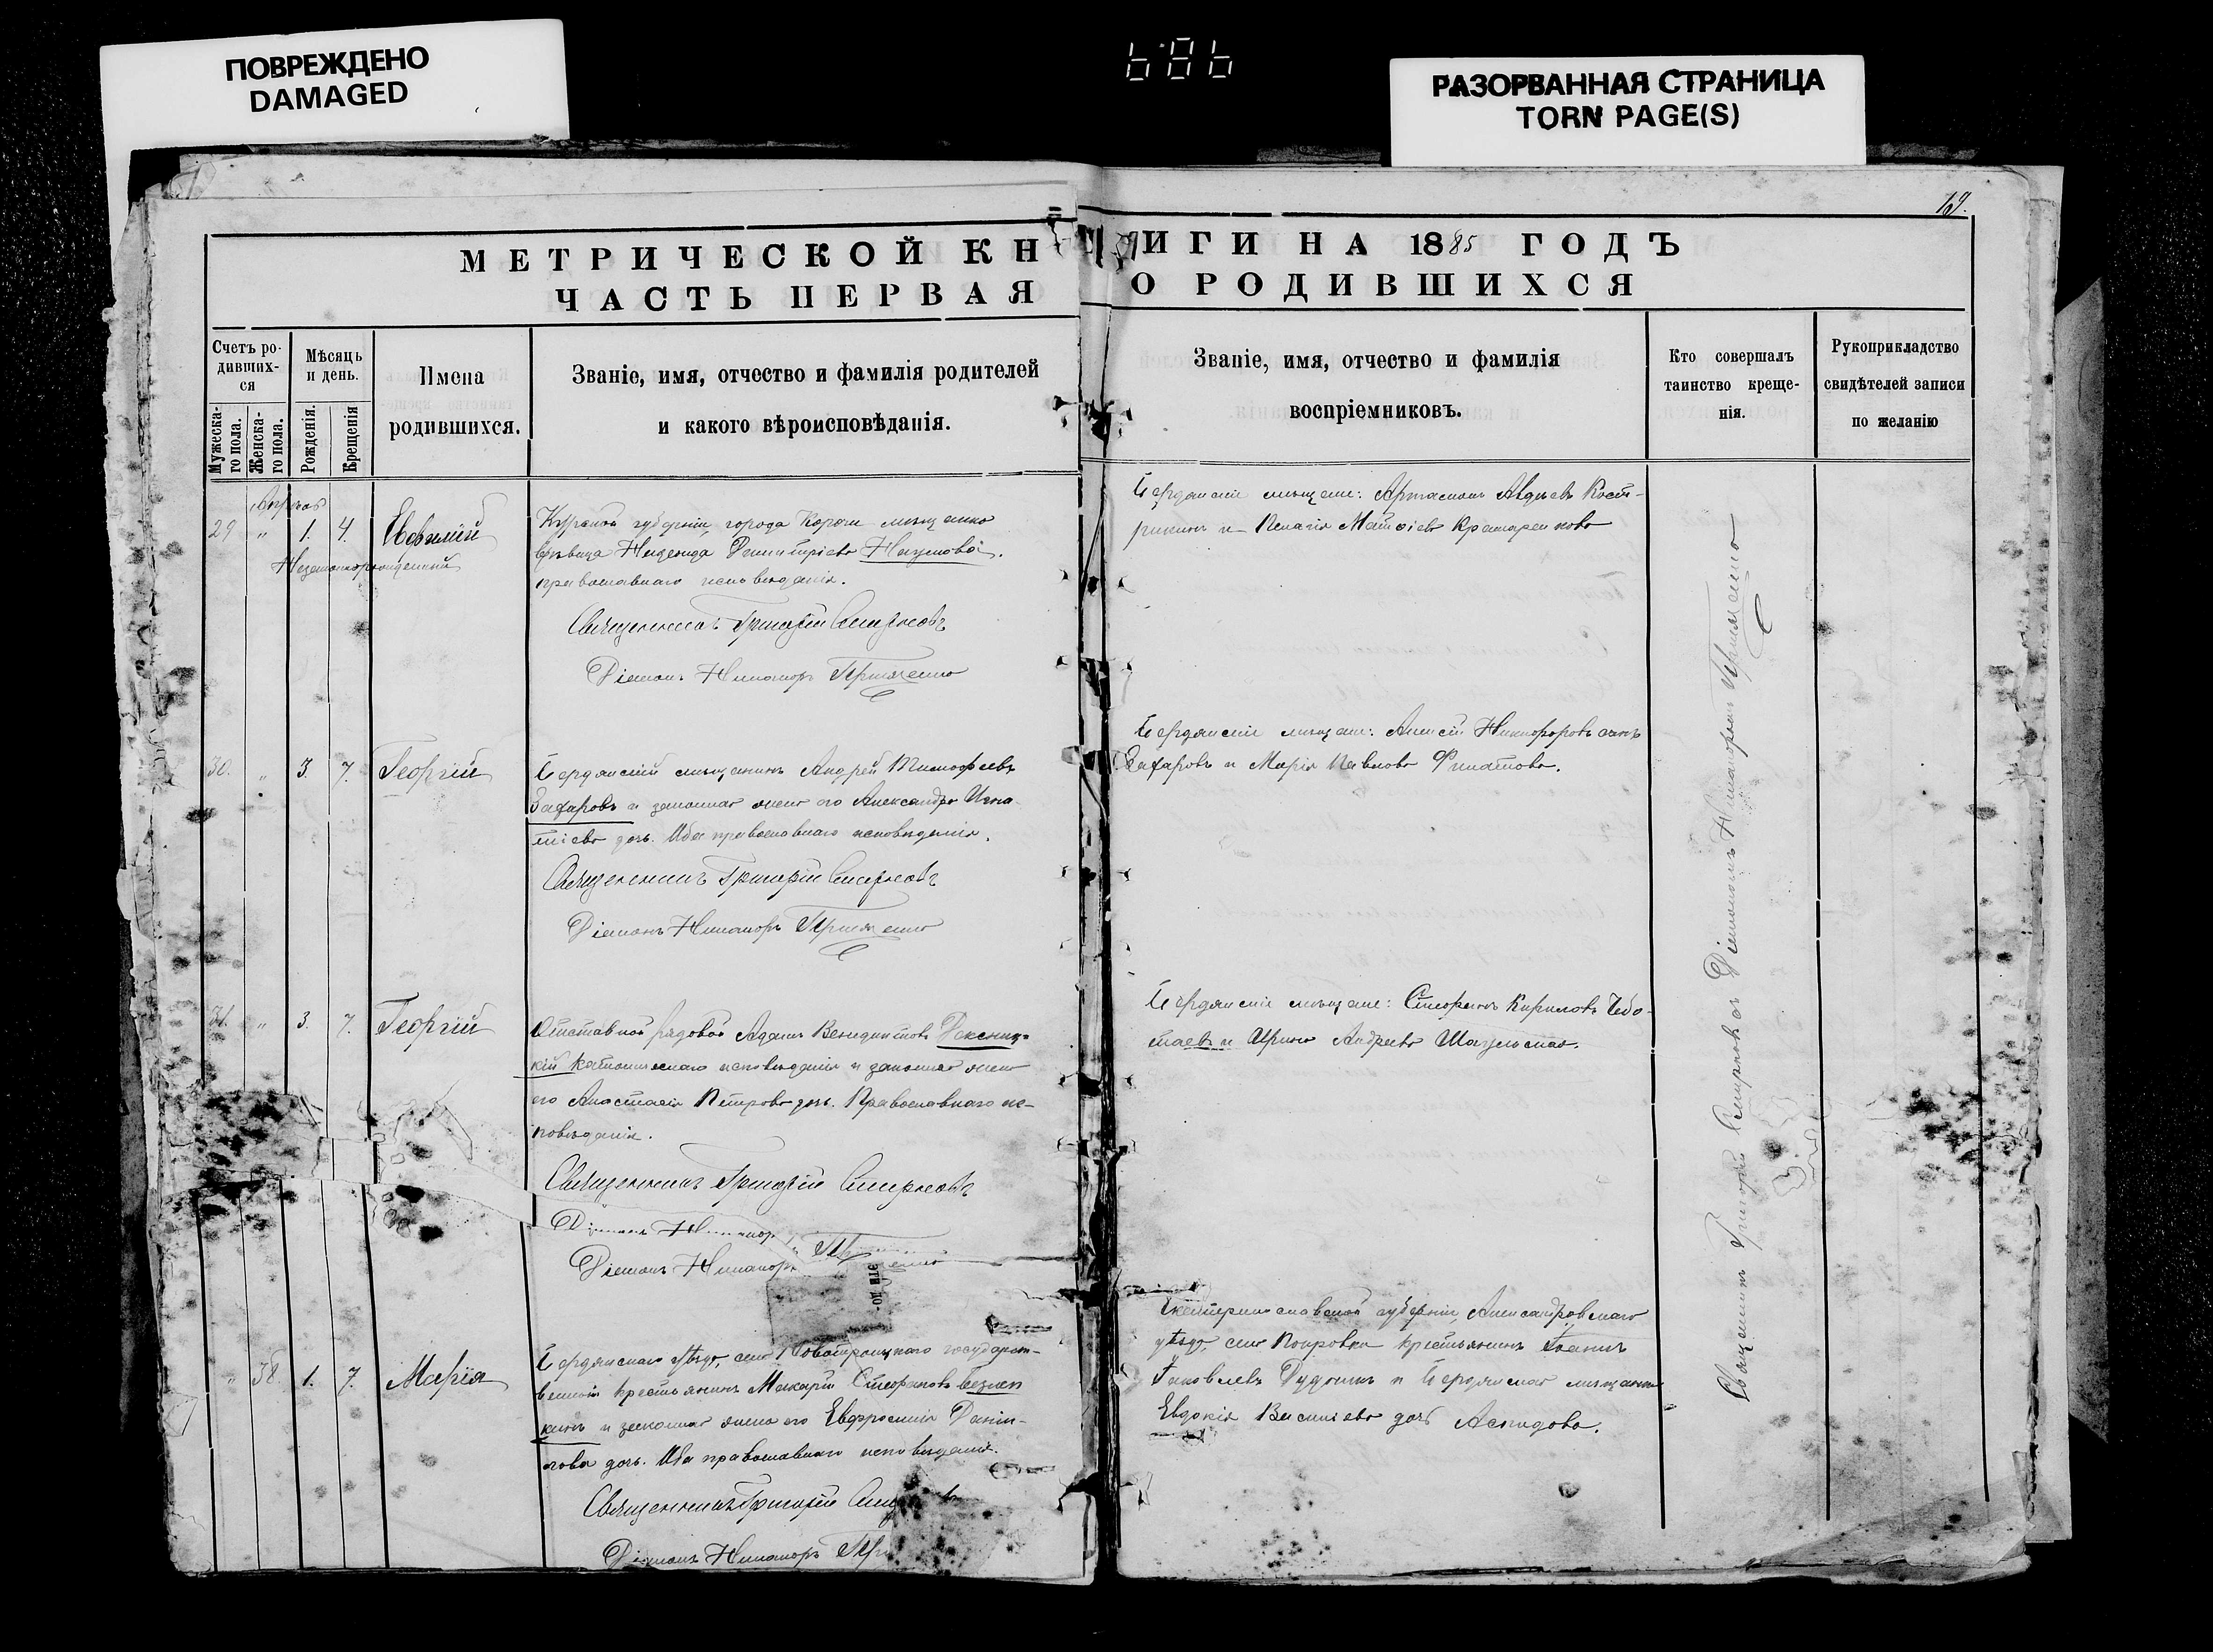 ПОВРЕЖДЕНО
DAMAGED
РАЗОРВАННАЯ СТРАНИЦА
TORN PAGE(S)
169.
МЕТРИЧЕСКОЙ КН
ЧАСТЬ ПЕРВАЯ
ИГИ НА 1885 ГОДЪ
О РОДИВШИХСЯ
Счетъ ро-
дивших-
ся
Мужеска-
го пола.
Женска-
го пола.
Мѣсяцъ
и день.
Рожденія.
Крещенія
Имена
родившихся.
Званіе, имя, отчество и фамилія родителей
и какого вѣроисповѣданія.
Званіе, имя, отчество и фамилія
воспріемниковъ.
Кто совершалъ
таинство креще-
нія.
Рукоприкладство
свидѣтелей записи
по желанію
29 " 1. 4. Евфимій
Незаконнорожденный
Курской губерніи, города Корочи мѣщанка
дѣвица Надежда Димитріева Наумова.
православнаго исповѣданія.
Священникъ Григорій Смирновъ
Діаконъ Никаноръ
Бердянскіе мѣщане: Артамонъ Авдѣевъ Кост-
рикинъ и Пелагія Матѳіева
30. " 3. 7. Георгій
Бердянскій мѣщанинъ Андрей Тимофѣевъ
Захаровъ и законная жена его Александра Игна-
тіева дочь. Оба православнаго исповѣданія.
Священникъ Григорій Смирновъ
Діаконъ Никаноръ
Бердянскіе мѣщане: Алексій Никифоровъ сынъ
Захаровъ и Марія Павлова Филатова.
31. " 3. 7. Георгій
Отставной рядовой Адамъ Венедиктовъ
кій католическаго исповѣданія и законная жена
его Анастасія Петрова дочь. Православнаго ис-
повѣданія.
Священникъ Григорій Смирновъ
Діаконъ Никаноръ
Діаконъ Никаноръ
Бердянскіе мѣщане: Стефанъ Кириловъ Чебо-
таевъ и Ирина Андреева
" 38. 1. 7. Марія
Бердянскаго уѣзда, села Новотроицкаго государст-
венный крестьянинъ Макарій Стефановъ
кинъ и законная жена его Евфросинія Данії-
лова дочь. Оба православнаго исповѣданія.
Священникъ Григорій
Діаконъ Никаноръ
Екатеринославской губерніи, Александровскаго
уѣзда, села Покровки крестьянинъ Іоаннъ
Іаковлевъ Дудкинъ и Бердянская мѣщанка
Евдокія Василіева дочь Аспидова.
Священникъ Григорій Смирновъ съ Діакономъ Никаноромъ